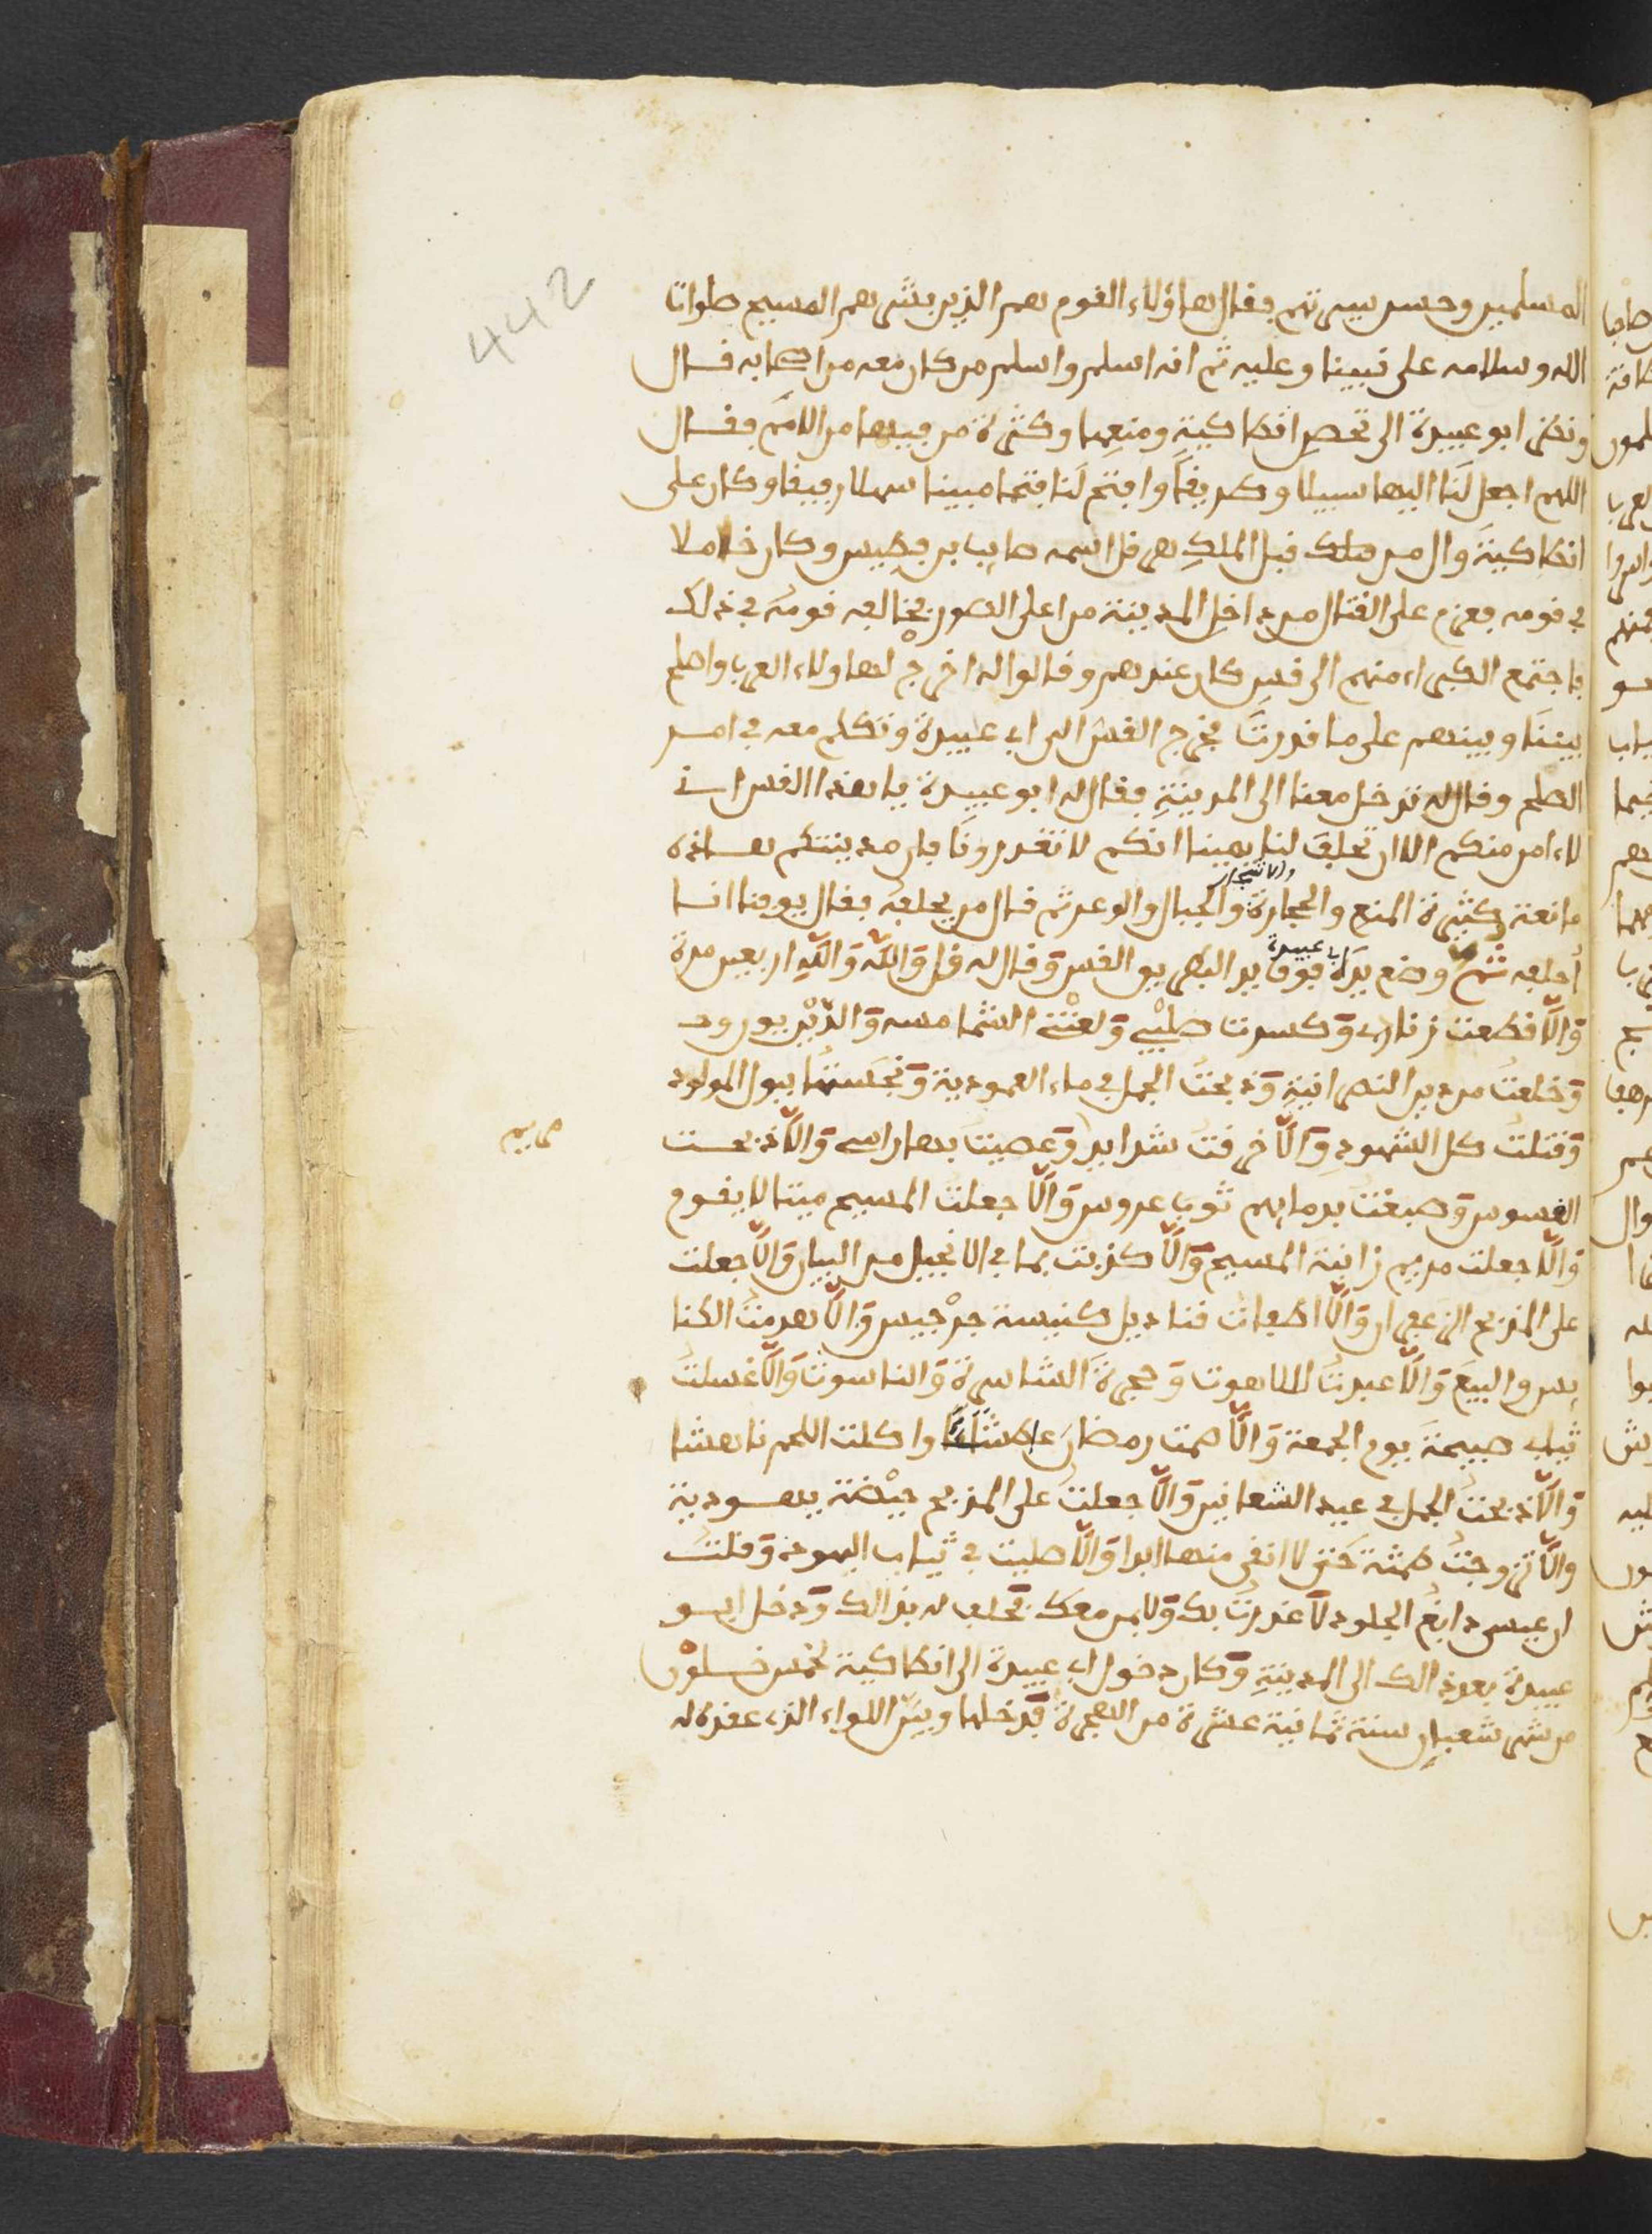 442
المسلمين وحسن سيرتهم فقال هاؤلاء القوم هم الذين بشر بهم المسيح صلوات
الله وسلامه على نبينا وعليه ثم انه اسلم واسلم من كان معه من اصحابه قال
ونظر ابو عبيدة الى تحصن انطاكية ومنعها وكثرة من فيها من الامم فقال
اللهم اجعل لنا اليها سبيلا وطريقا وافتح لنا فتحا مبينا سهلا رفيقا وكان على
انطاكية وال من ملك قبل الملك هرقل اسمه صايب بن فطيس وكان خاملا
في قومه فعزم على القتال من داخل المدينة من اعلى السور فخالفه قومه في ذلك
فاجتمع الكبراء منهم الى قس كان عندهم وقالوا له اخرج لهاولاء العرب واصلح
بيننا وبينهم على ما قدرت فخرج القس الى ابي عبيدة وتكلم معه في امر
الصلح وقال له تدخل معنا الى المدينة فقال له ابو عبيدة يا هذا القس اني
لاءامن منكم الا ان تحلف لنا يمينا انكم لا تغدرونا فان مدينتكم هاذه
مانعة كثيرة المنع والحجارة والاشجار والجبال والوعر ثم قال من يحلفه فقال يوقنا انا
أحلفه ثم وضع يد ابي عبيدة فوق يد البطريق القس وقال له قل والله والله اربعين مرة
والا قطعت زناري وكسرت صليبي ولعنتني الشمامسه والدير يورود
وخلعت من دين النصرانية وذبحت الجمل في ماء العمودية ونجستها ببول المولود
وقتلت كل الشهود والا خرقت شدايد وعصبت بها راسي والا ذبحت
مريم
القسوس وصبغت بدمايهم ثوب عروس والا جعلت المسيح ميتا لا يقوم
والا جعلت مريم زانية المسيح والا كذبت بما في الانجيل من البيان والا جعلت
على المذبح الزعفران والا اطفات قناديل كنيسة جرجيس والا هدمت الكنا
يس والبيع والا عبدت اللاهوت وحجرة الشاسرة والناسوت والا غسلت
ثياب صبيحة يوم الجمعة والا صمت رمضان عاطشا واكلت اللحم ناهشا
والا ذبحت الجمل في عيد الشعانين والا جعلت على المذبح حيضة يهودية
والا تزوجت طمثة حتى لا انقى منها ابدا والا صليت في ثياب اليهود وقلت
ان عيسى دابغ الجلود لا غدرت بك ولا بمن معك فحلف له بذالك ودخل ابو
عبيدة بعد ذالك الى المدينة وكان دخول ابي عبيدة الى انطاكية لخمس خلون
من شهر شعبان سنة ثمانية عشرة من الهجرة فدخلها وبين اللواء الذي عقده له